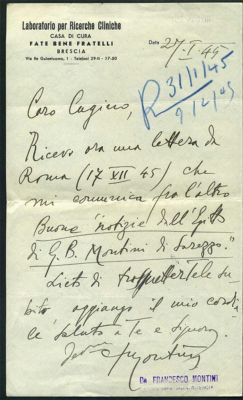 Laboratorio per Ricerche Cliniche
CASA DI CURA
FATE BENE FRATELLI
BRESCIA
Data 27-I-45
R 31/1/45
9/2/45
Caro Cugino,
Ricevo ora una lettera da
Roma (17 XII 45) che
mi comunica fra l'altro
Buone notizie dall'
di G. B. Montini di Sarezzo.
Lieto di trasmettertele su-
bito aggiungo il mio cordia
le saluto a te e signora.
Montini
Dr. FRANCESCO MONTINI